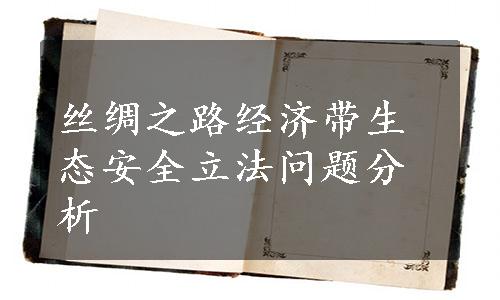 丝绸之路经济带生
态安全立法问题分
析